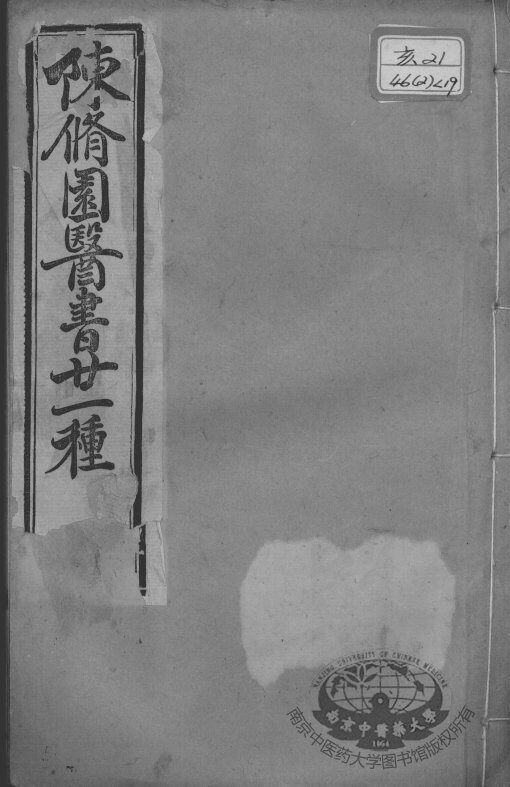 陳脩園醫書廿一種
亥21
46(2)<19
NANJING UNIVERSITY OF CHINESE MEDICINE
南京中醫藥大學
1954
南京中医药大学图书馆版权所有